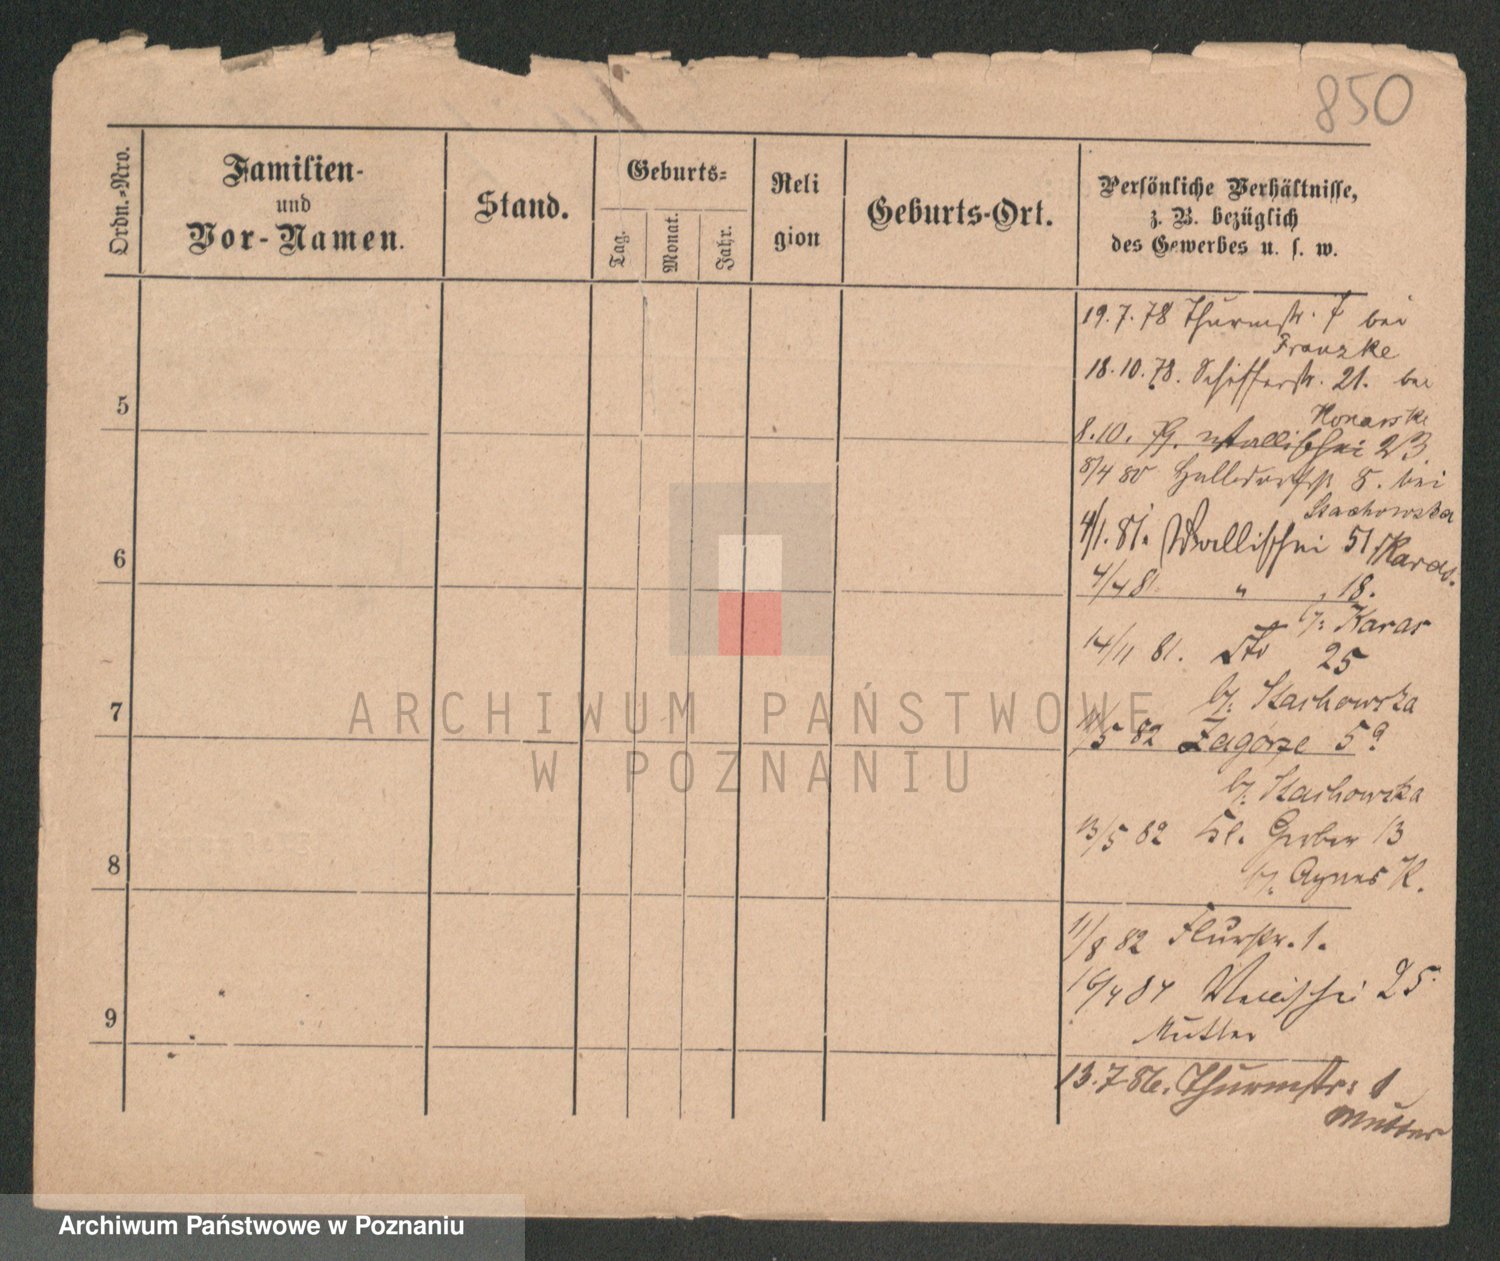 850
Ordn.-Nro.
Familien-
und
Vor-Namen.
Stand.
Geburts-
Tag.
Monat.
Jahr.
Reli
gion
Geburts-Ort.
Persönliche Verhältnisse,
z. B. bezüglich
des Gewerbes u. s. w.
19.7.78 Thurmstr. 7 bei
Franzke
18.10.78. Schifferstr. 21. bei
5
8.10. 79. Wallischei 23
8/4 80 8. bei
Stachowska
4/1. 81. Wallischei 51
6
4/4 81 " " 18.
b/. Karas
14/11 81. dto 25
b/. Stachowska
7
5 82 Zagórze 5a
b/. Stachowska
13/5 82 Kl. Gerber 13
b/. Agnes K.
8
11/8 82 Flurstr. 1.
16/4 84 Wallischei 25
Mutter
9
13.7.86. Thurmstr: 1
Mutter
ARCHIWUM PAŃSTWOWE
W POZNANIU
Archiwum Państwowe w Poznaniu